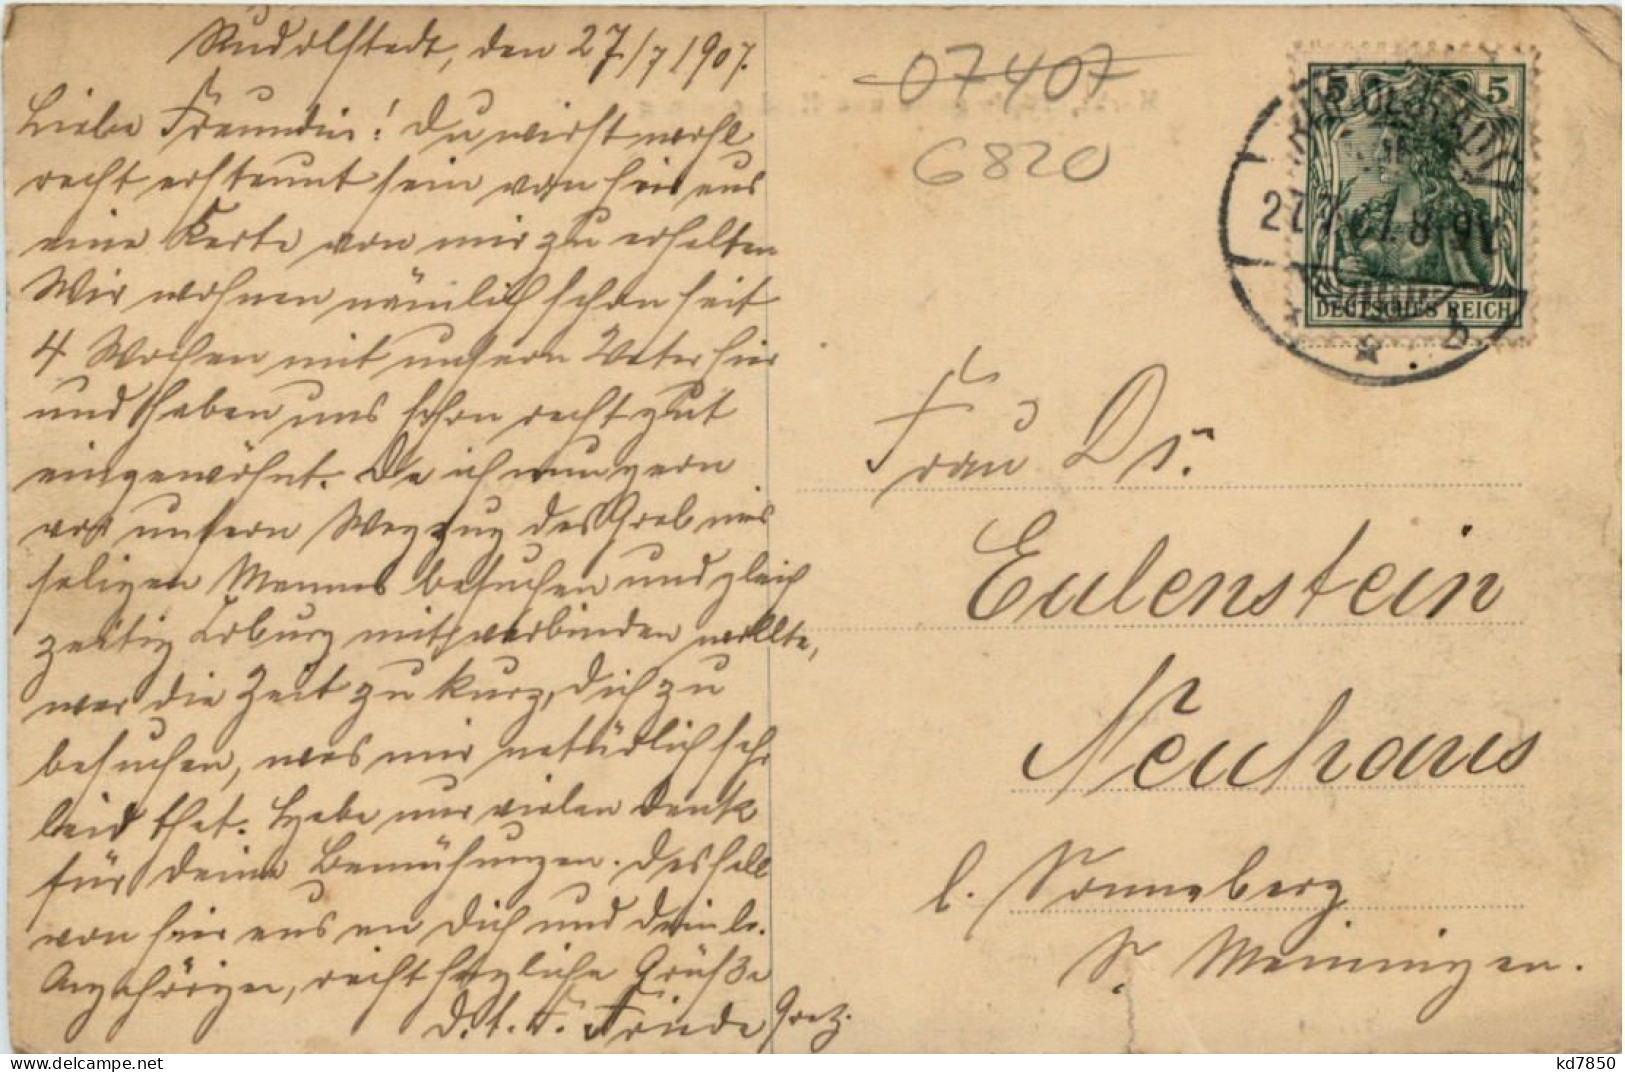 Rudolstadt, den 27/7 1907.
Liebe Freundin! Du wirst wohl
recht erstaunt sein von hier aus
eine Karte von mir zu erhalten
Wir wohnen nämlich schon seit
4 Wochen mit unsern Vater hier
und haben uns schon recht gut
eingewöhnt. Da ich nun gern
vor unsern Wegzug das Grab meines
seligen Mannes besuchen und gleich
zeitig Coburg mit verbinden wollte,
war die Zeit zu kurz, Dich zu
besuchen, was mir natürlich sehr
leid that. Habe nur vielen Dank
für deine Bemühungen. Deshalb
von hier aus an Dich und Deine l.
Angehörigen, recht herzliche Grüße
D. t. F. Friede
07407
6820
5 5
RUDOLSTADT
27.7.07.8-9V.
DEUTSCHES REICH
b
Frau Dr.
Eulenstein
Neuhaus
b. Sonneberg
S. Meiningen.
kd7850